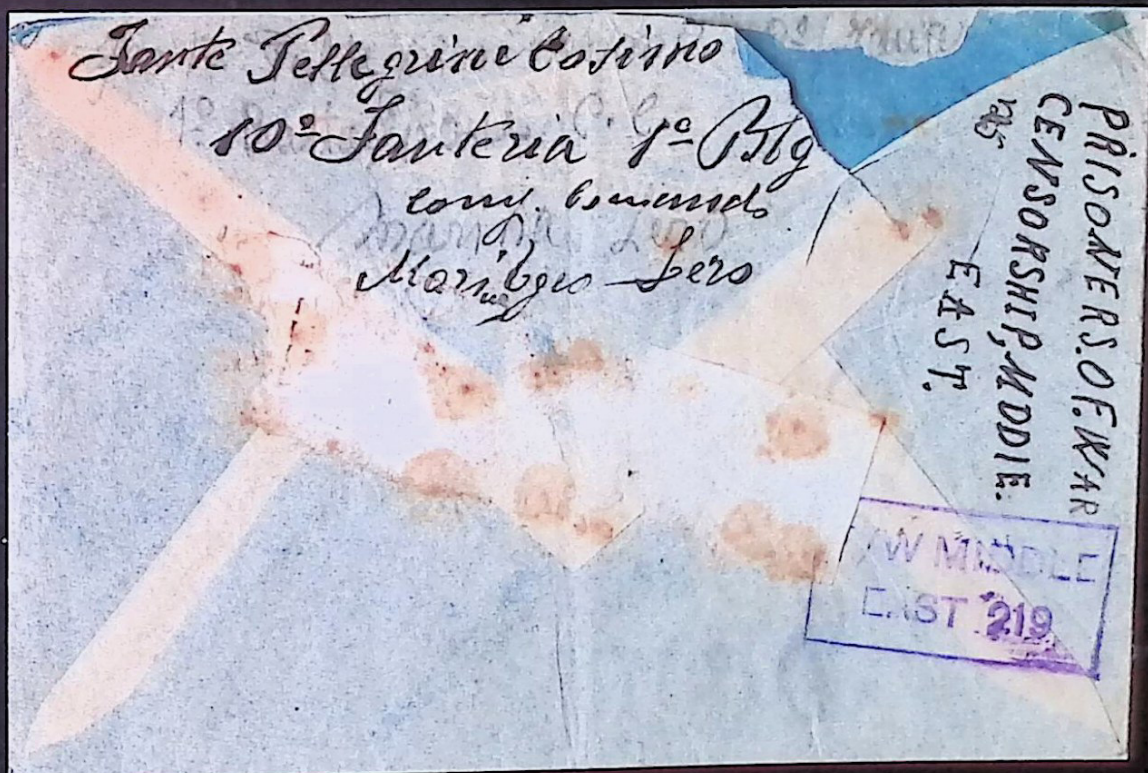 Fante Pellegrini Cosimo
10º Fanteria 1º Btg
comp. Comando
Lero
PRISONERS.OF.WAR
CENSORSHIP, MIDDIE.
EAST.
PW MIDDLE
EAST 219